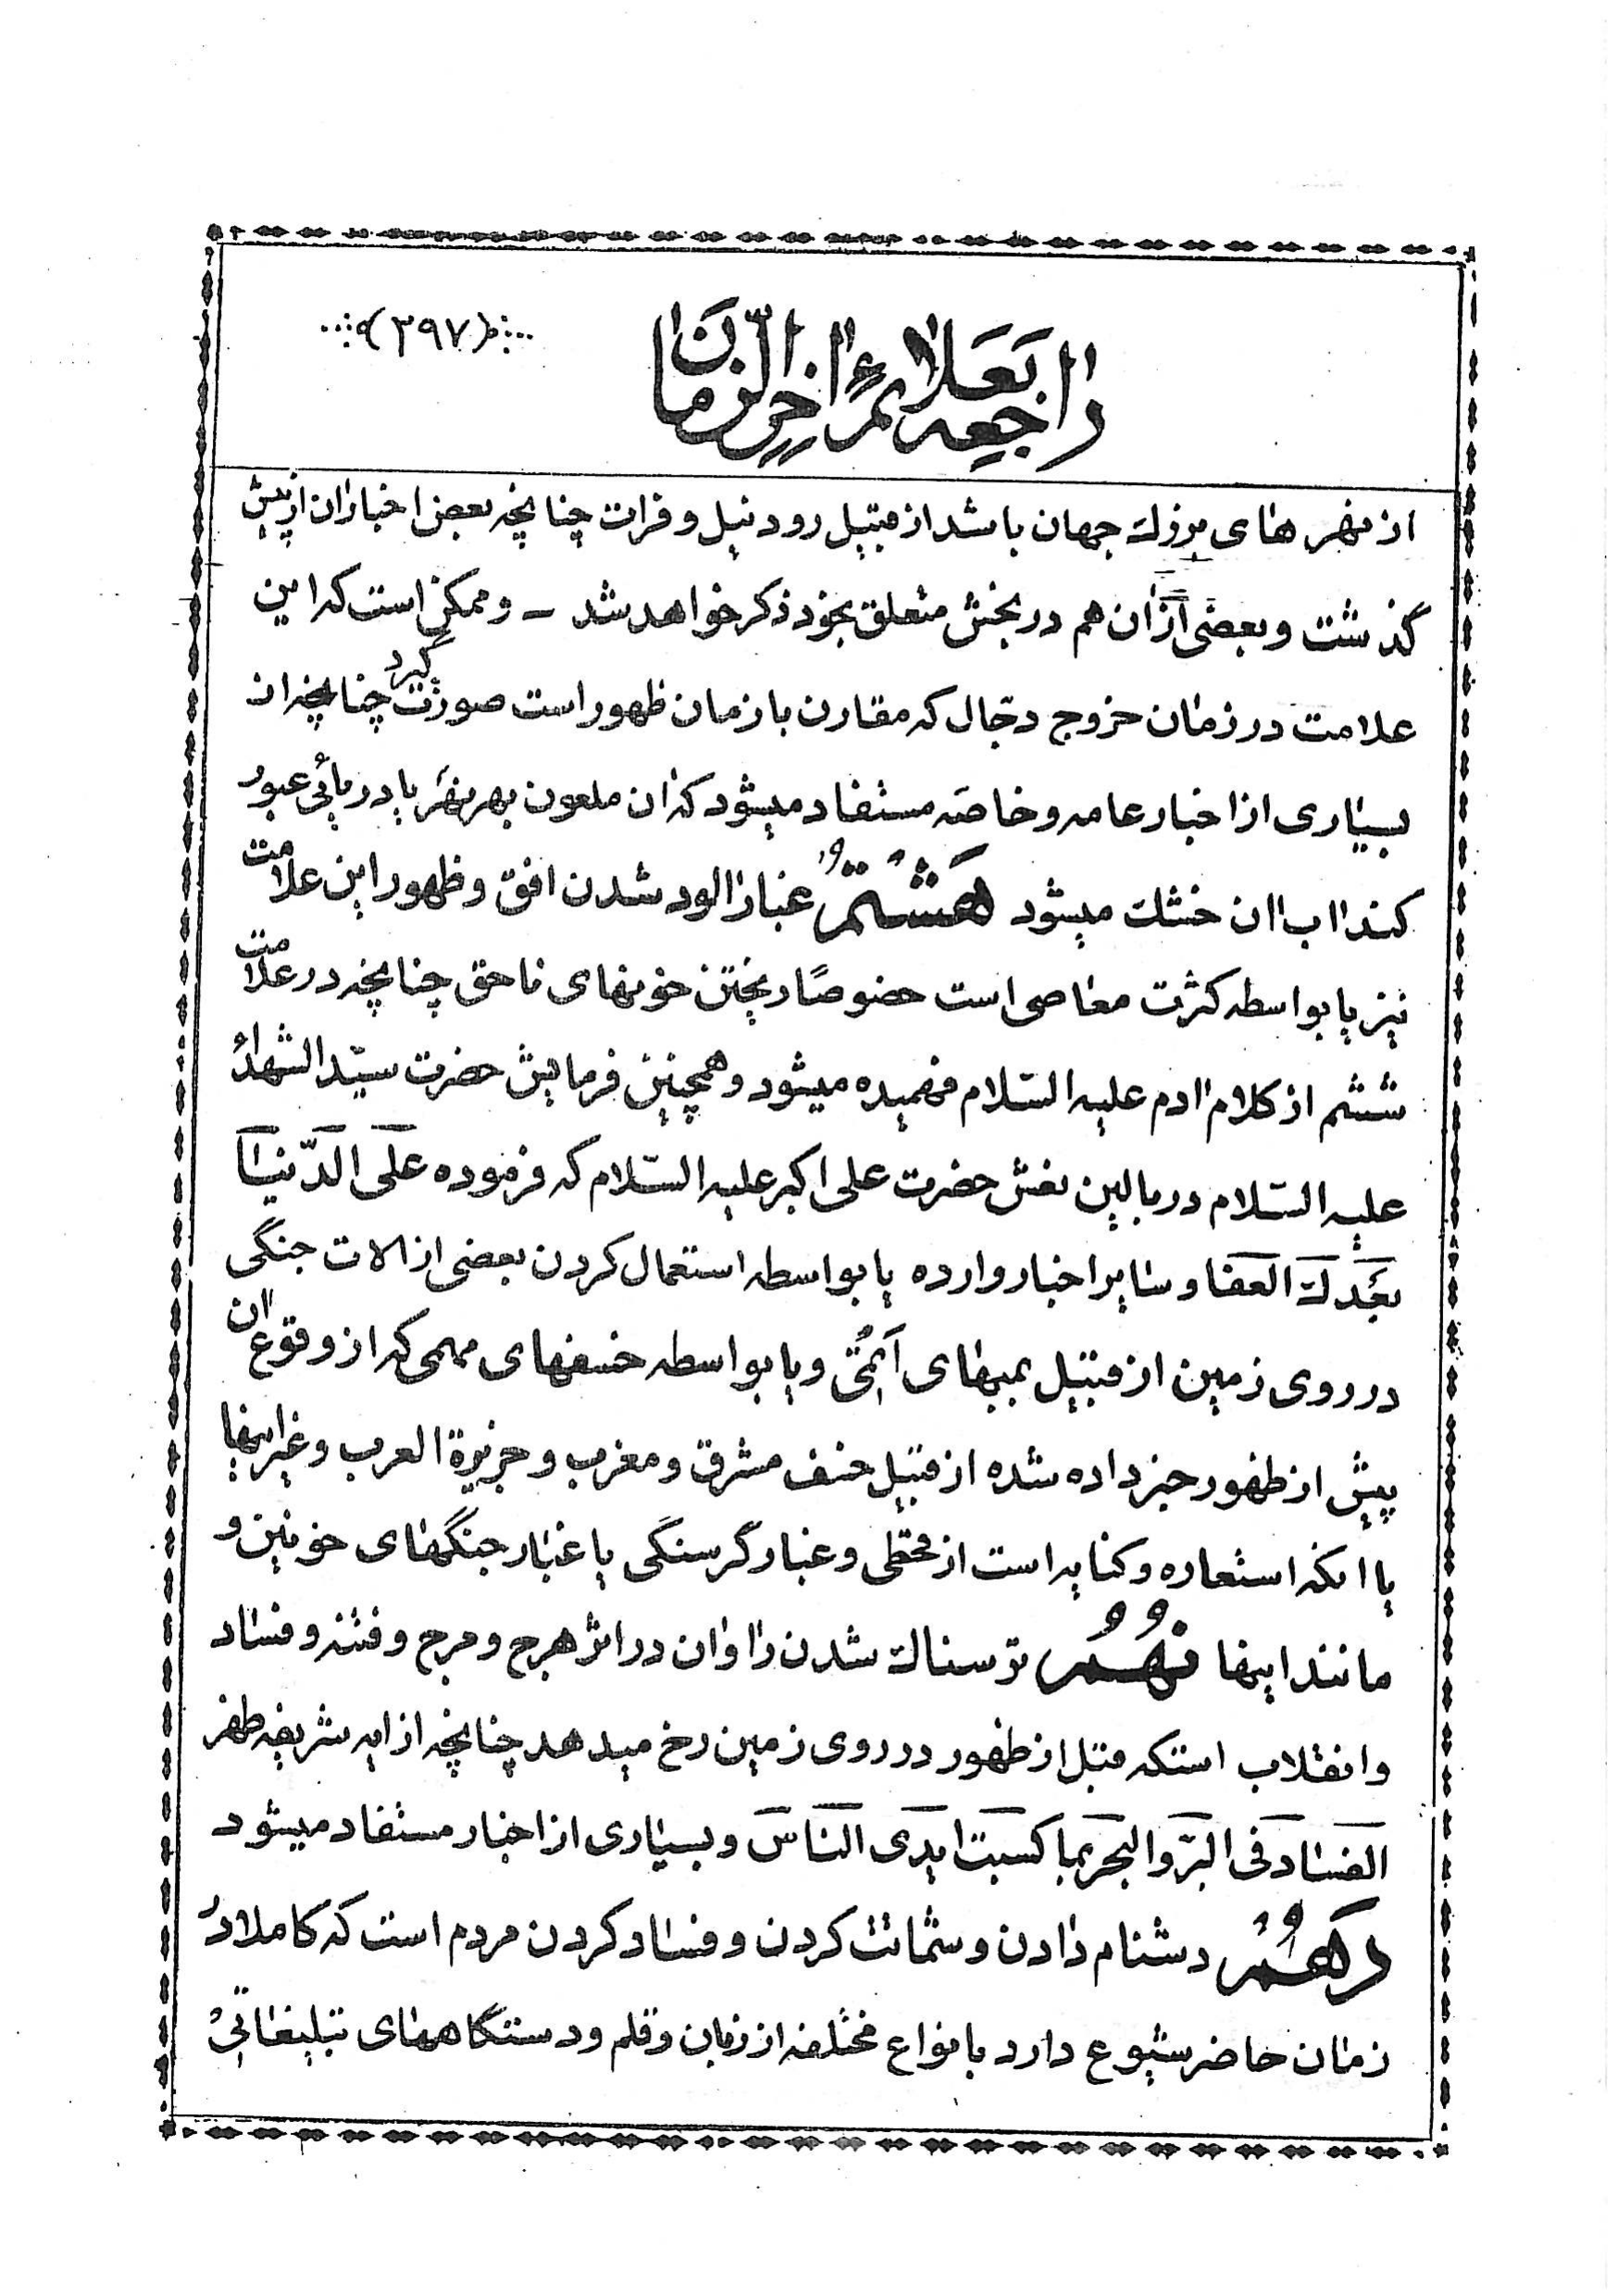 (۳۹۷)
راجعه بعلائم آخر الزمان
از نهرهای بزرك جهان باشد از قبیل رود نیل و فرات چنانچه بعض اخبار ان از پیش
گذشت و بعضی از ان هم در بخش متعلق بخود ذکر خواهد شد - و ممکن است که این
علامت در زمان خروج دجّال که مقارن با زمان ظهور است صورت گیرد چنانچه از
بسیاری از اخبار عامه و خاصّه مستفاد میشود که ان ملعون بهر نهر یا دریائی عبور
کند اب ان خشك میشود هشتم غبار الود شدن افق و ظهور این علامت
نیز یا بواسطه کثرت معاصی است خصوصًا ریختن خونهای ناحق چنانچه در علامت
ششم از کلام ادم علیه السّلام فهمیده میشود و همچنین فرمایش حضرت سیّد الشهداء
علیه السّلام در بالین نعش حضرت علی اکبر علیه السّلام که فرموده عَلَی الدّنیا
بَعْدَكَ العَفا و سایر اخبار وارده یا بواسطه استعمال کردن بعضی از الات جنگی
در روی زمین از قبیل بمبهای اتمی و یا بواسطه خسفهای مهمی که از وقوع ان
پیش از ظهور خبر داده شده از قبیل خسف مشرق و مغرب و جزیرة العرب و غیر اینها
یا انکه استعاره و کنایه است از قحطی و غبار گرسنگی یا غبار جنگهای خونین و
مانند اینها نهم ترسناك شدن راوان در اثر هرج و مرج و فتنه و فساد
و انقلاب استکه قبل از ظهور در روی زمین رخ میدهد چنانچه از ایه شریفه ظهر
الفساد فی البرّ و البحر بما کسبت ایدی الناس و بسیاری از اخبار مستفاد میشود
دهم دشنام دادن و شماتت کردن و فساد کردن مردم است که کاملا در
زمان حاضر شیوع دارد بانواع مختلفه از زبان و قلم و دستگاههای تبلیغاتی